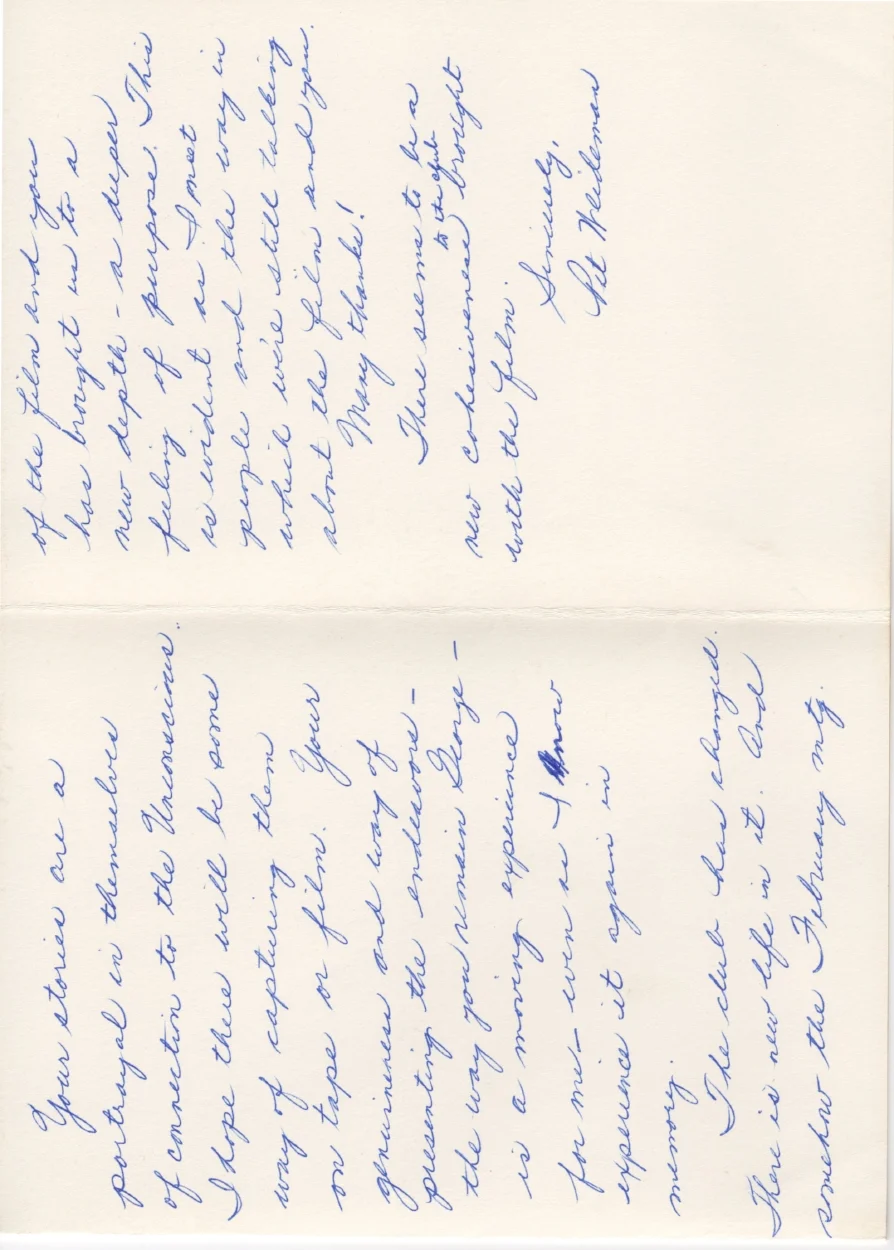 Your stories are a
portrayal in themselves
of connection to the Unconscious.
I hope there will be some
way of capturing them
on tape or film. Your
genuineness and way of
presenting the endeavors –
the way you remain George –
is a moving experience
for me – even as I now
experience it again in
memory.
The club has changed.
There is new life in it. And
somehow the February mtg.
of the film and you
has brought us to a
new depth – a deeper
feeling of purpose. This
is evident as I meet
people and the way in
which we're still talking
about the film and you.
Many thanks!
There seems to be a
to the club
new cohesiveness brought
with the film.
Sincerely,
Pat Weideman